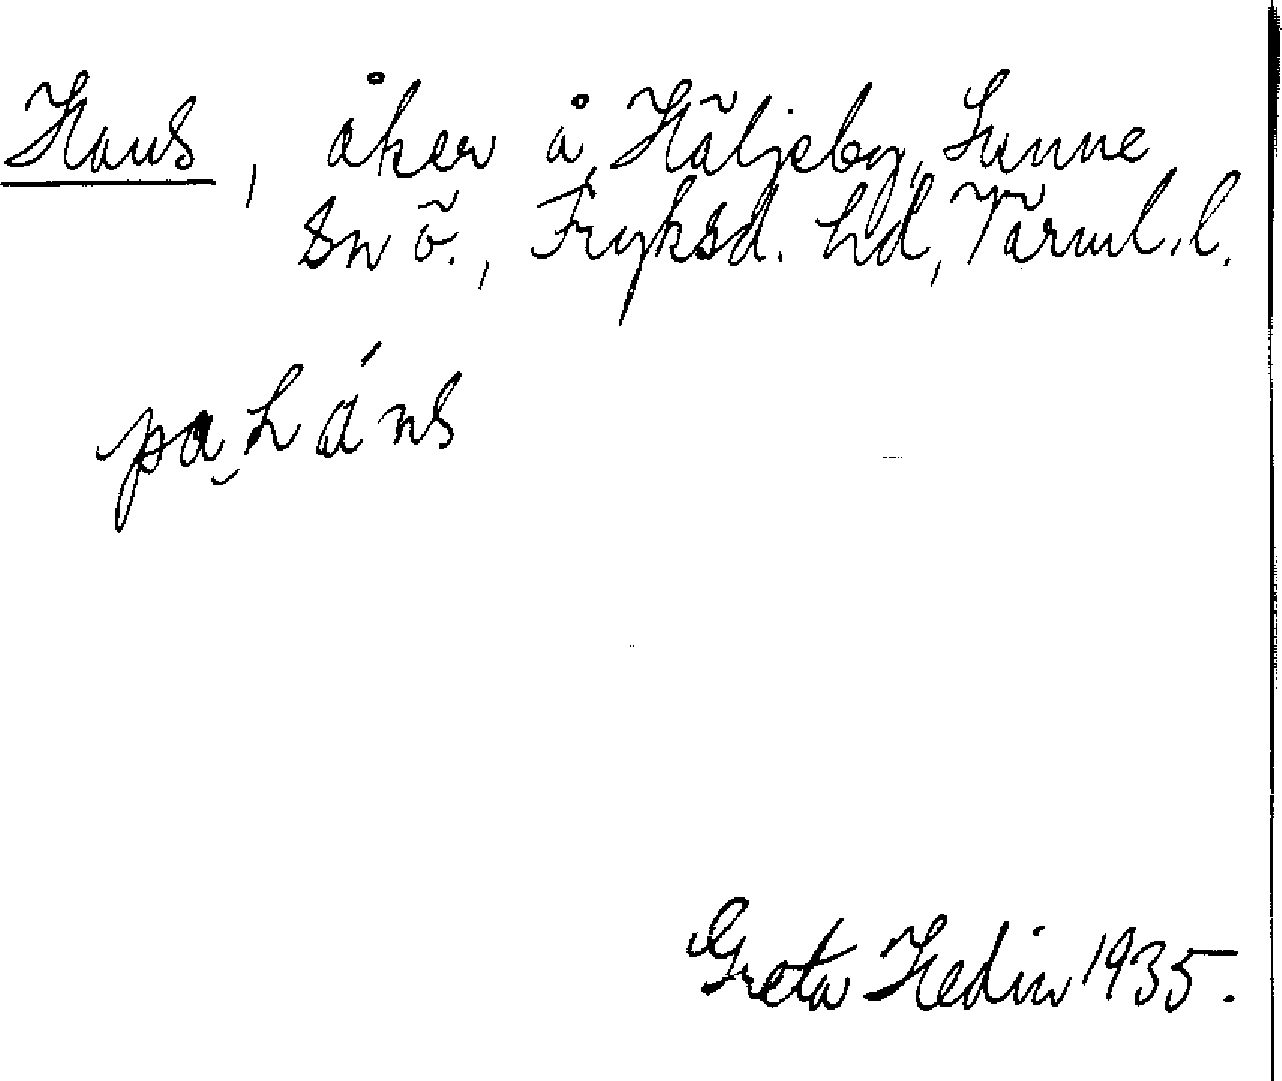 Hans, åker å Häljeby, Sunne
sn ö., Fryksd. hd, Värml. l.
pa háns
Greta Hedin 1935.